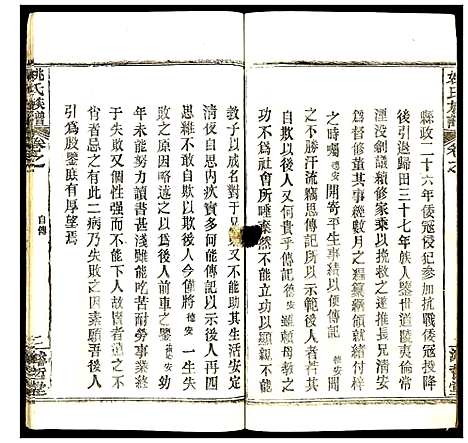 姚氏族譜
卷之
縣政二十六年倭寇侵犯參加抗戰倭寇投降
後引退歸田三十七年族人鑒世道陵夷倫常
湮沒創議續修家乘以挽救之遂推長兄濟安
爲督修董其事經數月之纂纂稿領就緒付梓
之時囑德安開寄平生事績以便傳記德安聞
之不勝汗流竊思傳記所以示範後人者若其
自欺以欺後人又何貴乎傳記德安雖頗母教
功不能爲社會所唾棄然不能立功以顯親
教子以成名對于又不能助其生活安定
清夜自思内疚實多何能傳記以示後人再四
思維不敢自欺以欺後人今僅將德安一生失
敗之原因略述之以爲後人前車之鑒德安幼
年未能努力讀書甚淺雖能吃苦耐勞事業終
于失敗又個性强而不能下人故與人
肯全始惡之有此二病乃失敗之因素願吾後人
引爲殷鑒庶有厚望焉
姚氏族譜
卷之
自傳
二
濬哲堂